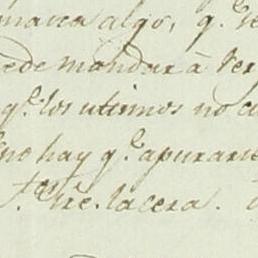 marca algo, q.e
ede mandar à Ver
q.e los utimos no
no hay q.e apurarse
la cera.